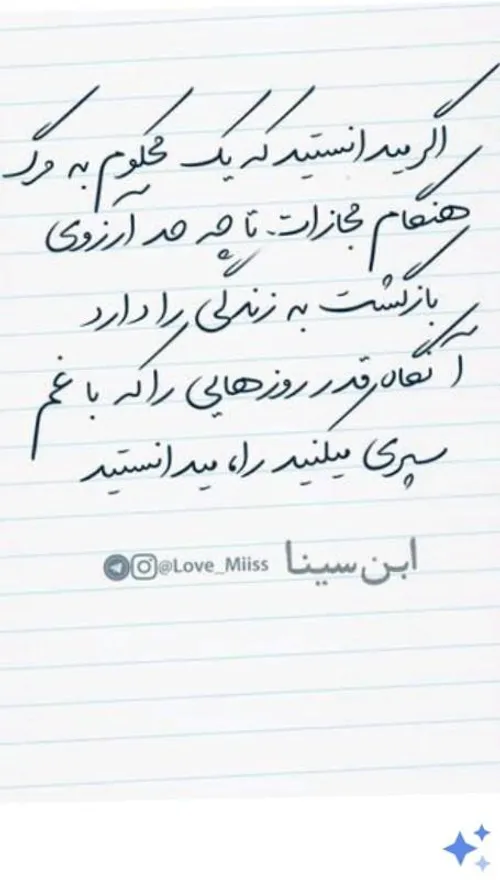 اگر میدانستید که یک محکوم به مرگ
هنگام مجازات تا چه حد آرزوی
بازگشت به زندگی را دارد
آنگاه قدر روزهایی را که با غم
سپری میکنید را، میدانستید
ابن سینا @Love_Miiss